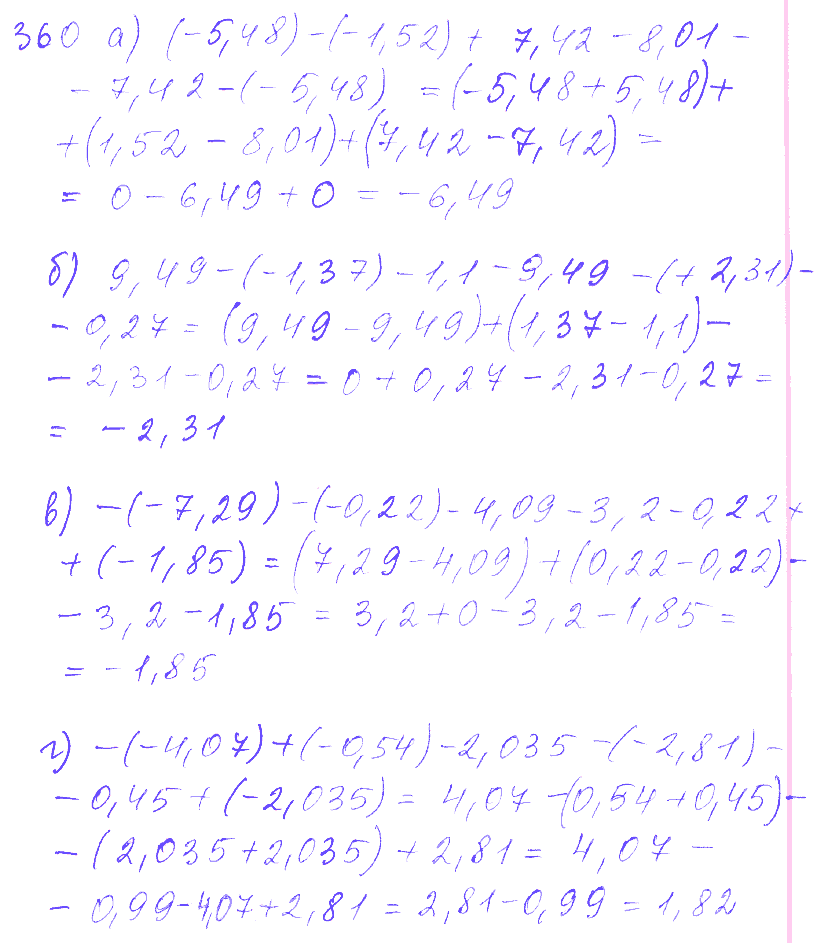 360 а) (-5,48)-(-1,52)+ 7,42-8,01-
-7,42-(-5,48) =(-5,48+5,48)+
+(1,52-8,01)+(7,42-7,42)=
= 0-6,49+0=-6,49
б) 9,49-(-1,37)-1,1-9,49-(+2,31)-
-0,27=(9,49-9,49)+(1,37-1,1)-
-2,31-0,27=0+0,27-2,31-0,27=
= -2,31
в) -(-7,29)-(-0,22)-4,09-3,2-0,22+
+(-1,85)=(7,29-4,09)+(0,22-0,22)-
-3,2-1,85=3,2+0-3,2-1,85=
=-1,85
г) -(-4,07)+(-0,54)-2,035-(-2,81)-
-0,45+(-2,035)= 4,07-(0,54+0,45)-
-(2,035+2,035)+2,81= 4,07-
-0,99-4,07+2,81=2,81-0,99=1,82